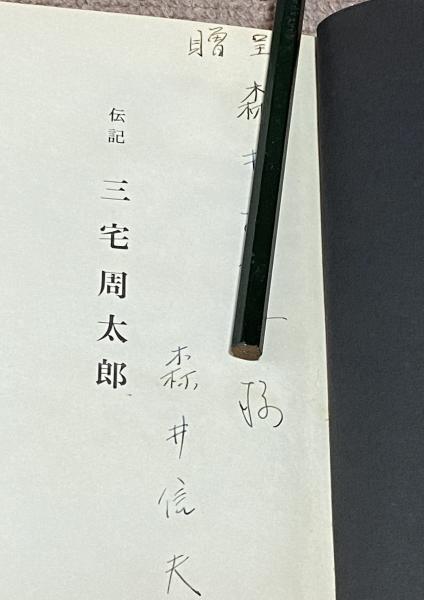 贈呈
森井 様
森井信夫
伝記
三宅周太郎